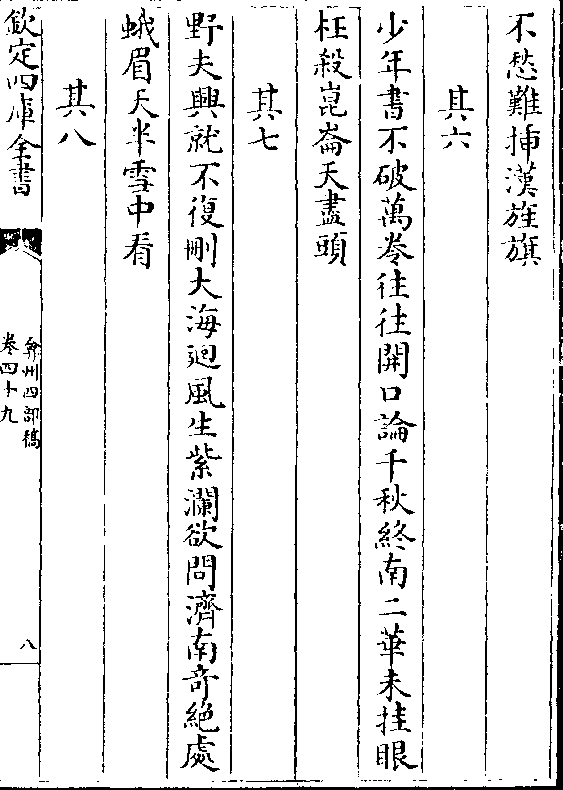 不愁難揷漢旌旗
其六
少年書不破萬卷往往開口論千秋終南二華未挂眼
枉殺崑崙天盡頭
其七
野夫興就不復刪大海廻風生紫瀾欲問濟南奇絶處
蛾眉天半雪中看
其八
欽定四庫全書
弇州四部稿
卷四十九
八